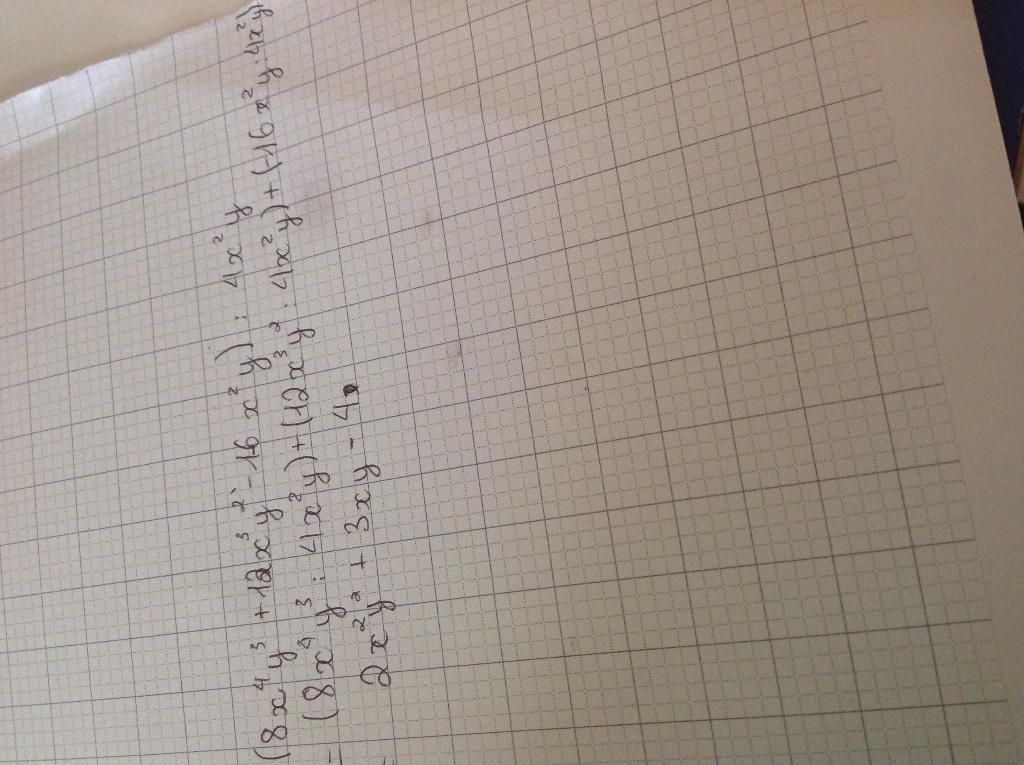 (8x⁴y³ + 12x³y² - 16x²y) : 4x²y
= (8x⁴y³ : 4x²y) + (12x³y² : 4x²y) + (-16x²y : 4x²y)
= 2x²y² + 3xy - 4.